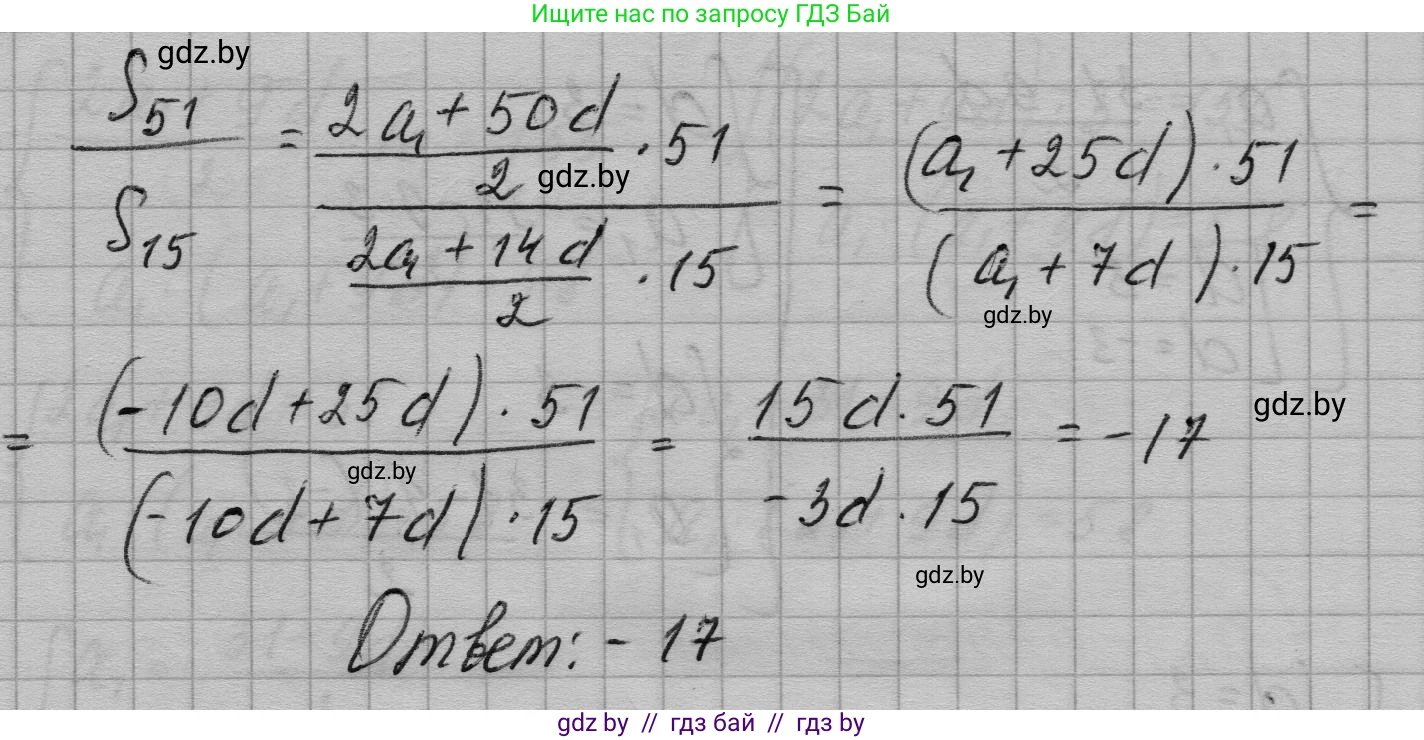 Ищите нас по запросу ГДЗ Бай
gdz.by
S₅₁ / S₁₅ = ((2a₁ + 50d)/2 · 51) / ((2a₁ + 14d)/2 · 15) = ((a₁ + 25d) · 51) / ((a₁ + 7d) · 15) =
gdz.by
gdz.by
= ((-10d + 25d) · 51) / ((-10d + 7d) · 15) = (15d · 51) / (-3d · 15) = -17
gdz.by
gdz.by
gdz.by
Ответ: - 17
gdz.by // гдз бай // гдз by